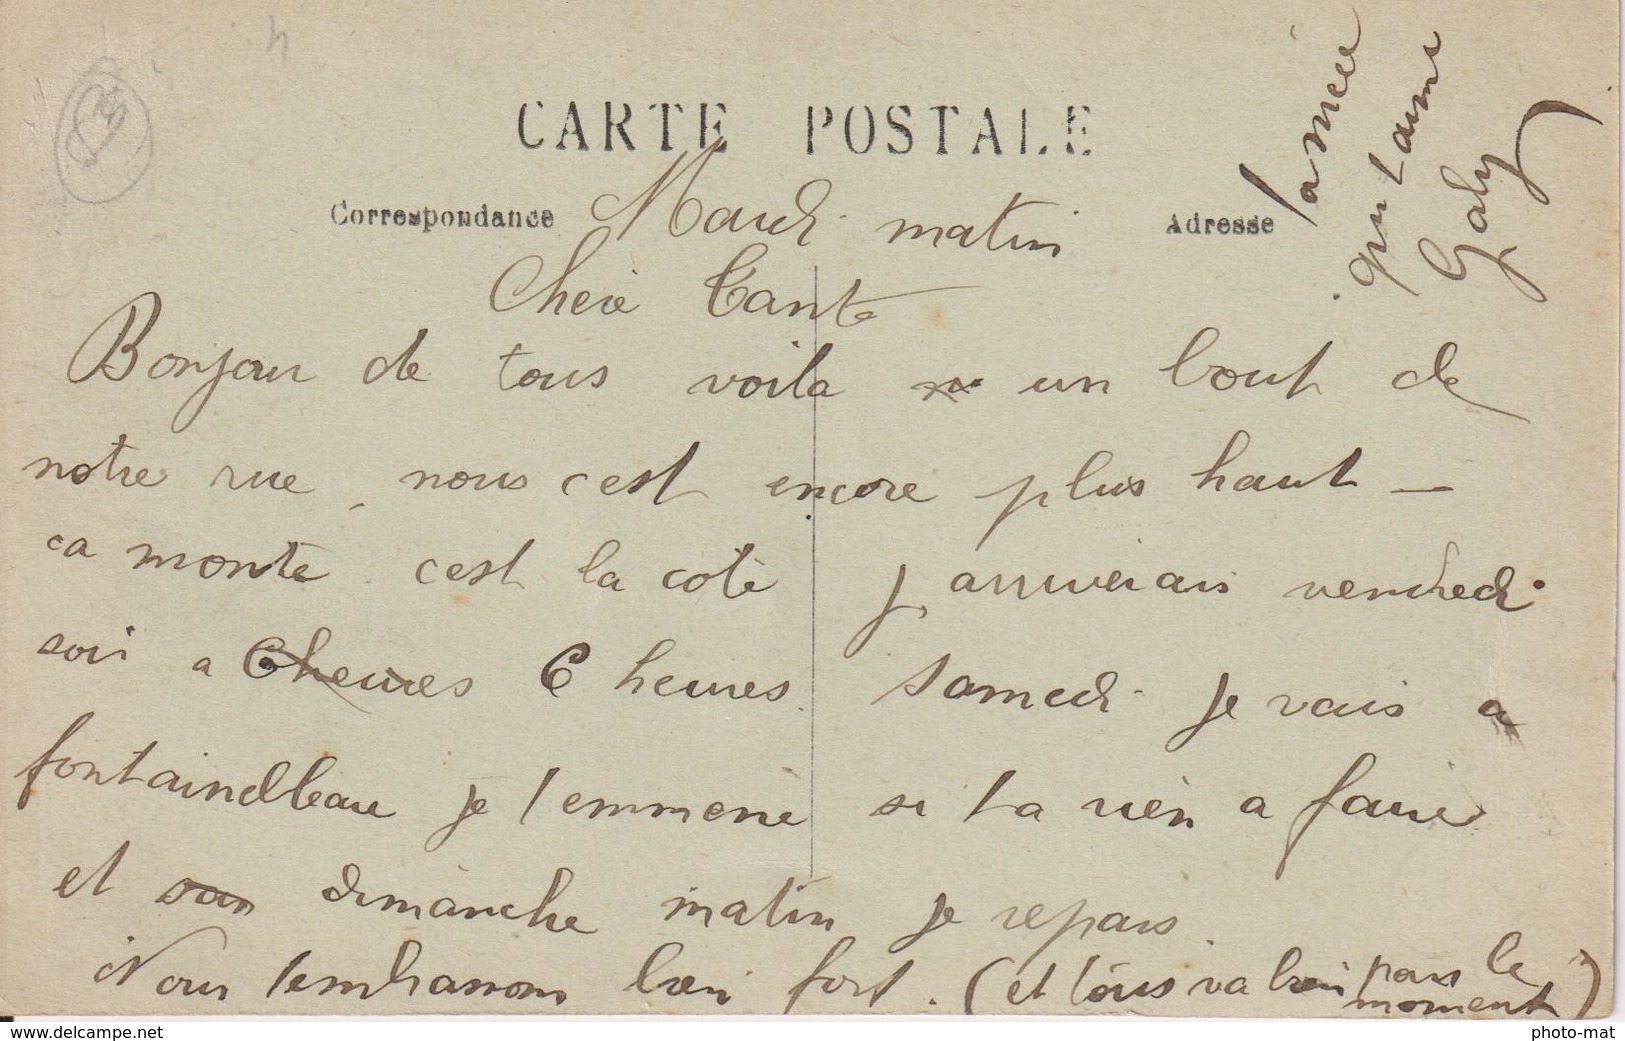 CARTE POSTALE
Correspondance
Adresse
Mardi matin
Chère Tante
Bonjour de tous voila un bout de
notre rue, nous c est encore plus haut —
ca monte c est la cote j arriverais vendredi
soir a 6 heures 6 heures. Samedi je vais a
fontainelbeau je t emmene si t a rien a faire
et dimanche matin je repars.
Nous t embrassons bien fort. (et tous va bien pour le
moment)
ta niece
qui t aime
Gaby
delcampe.net
photo-mat